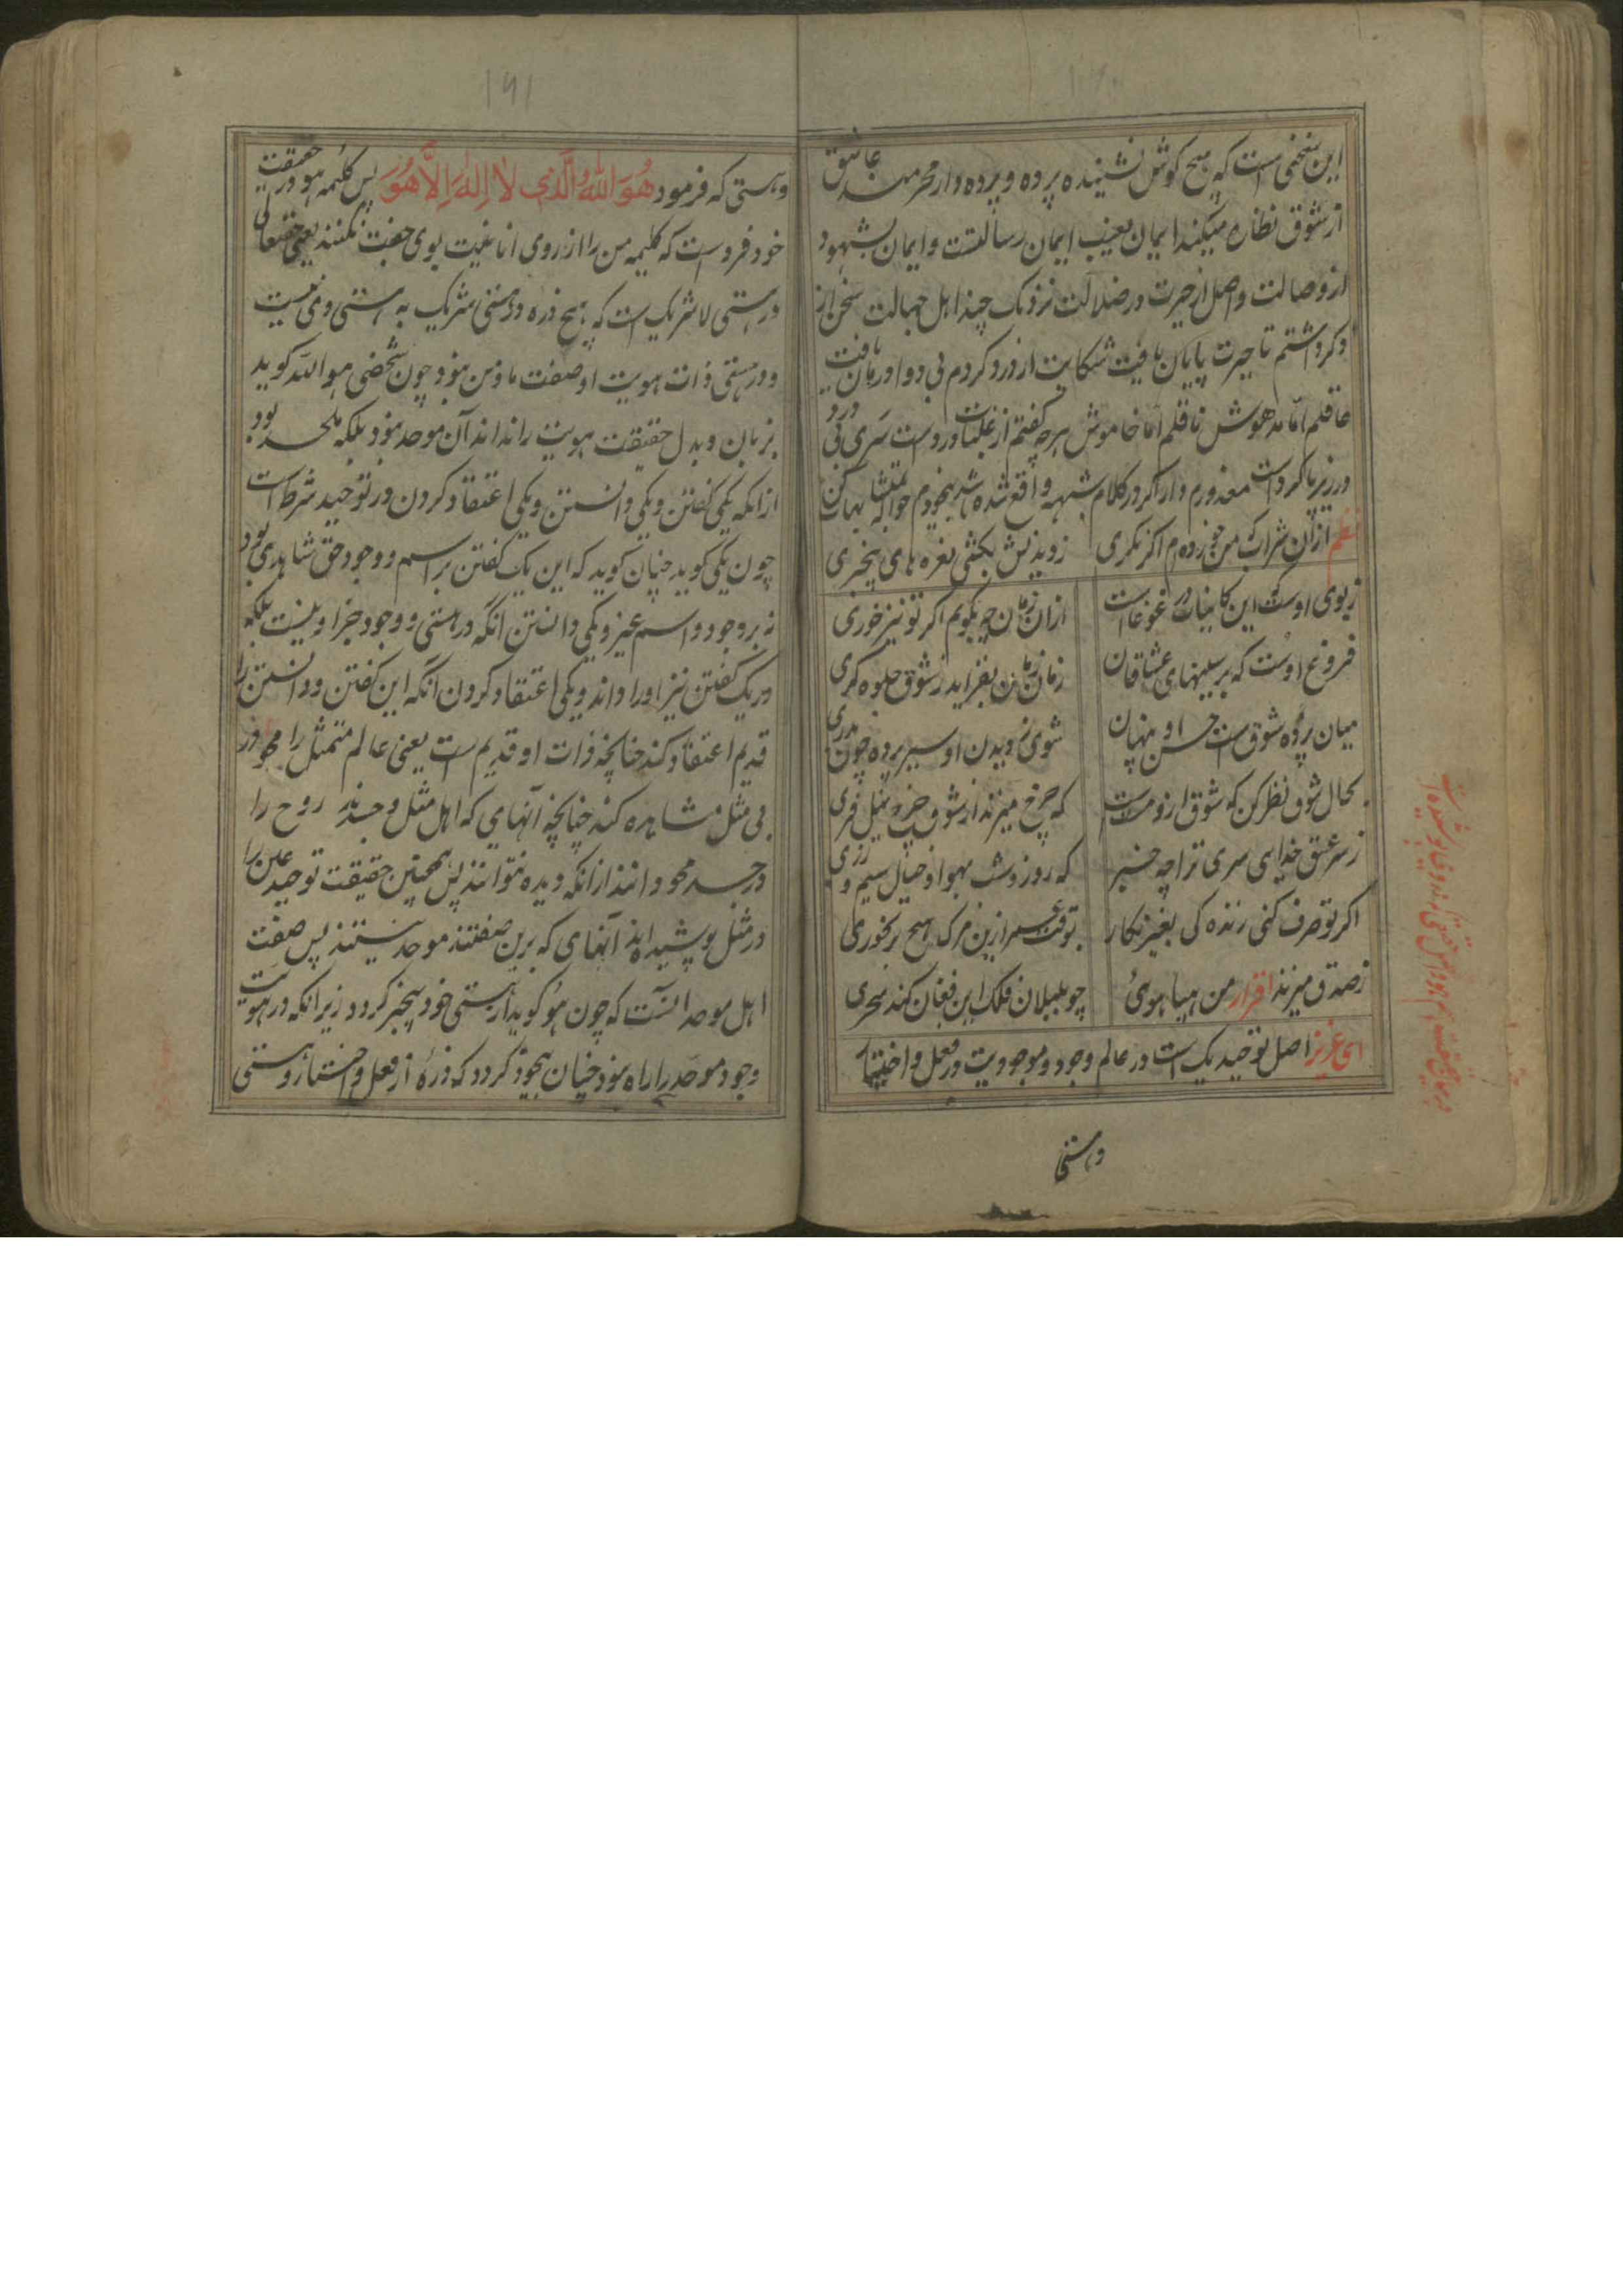 این سخنی است که هیچ گوش نشنیده پرده و پرده دار محرمند عاشق
از شوق نظاره میکند ایمان بغیب ایمان رسالتست و ایمان بشهود
از وصالت واصل از حیرت در ضلالت نزدیک چند اهل جهالت سخن از
و کرد اشتم تا حیرت پایان یافت شکایت از درد کردم بی دوا درمان یافت
عاقلم اما مدهوش ناقلم اما خاموش هرچه گفتم از غلبات درد است سری بی درد
در زیر پا کرد است معذورم دار اگر در کلام شبهه واقع شده باشد بیخودم حواله بمتشابهات کن
نظم ازان شراب که من خورده ام اگر نگری
زدیدنش بکشی نعره های بیخبری
زبوی اوست که این کاینات در غوغاست
ازان زمان چه بگویم اگر تو نیز خوری
فروغ اوست که بر سینهای عشاقان
زمان زمان بفزاید ز شوق جلوه گری
میان پرده شوق است حسن او پنهان
شوی ز دیدن او سیر پرده چون بدری
بحال شوق نظر کن که شوق ازو مست است
که چرخ میزند از شوق چرخ نیل فری
زسر عشق خدایی سری ترا چه خبر
که روز و شب بهوا و خیال سیم و زری
اگر تو صرف کنی زنده کی بغیر نکار
بوقت ازین مرک هیچ بر نخوری
زصدق میزند اقرار من هیا هوئی
چو بلبلان فلک این فغان کند سحری
ای عزیز اصل توحید یک است در عالم وجود و موجودیت و در فعل و اختیار
وهستی
۱۹۱
وهستی که فرمود هُوَ اللّٰهُ الَّذِی لَا اِلٰهَ اِلَّا هُوَ پس کلیمه هو در حقیقت
خود فرد است که کلیمه من را از روی انانیت بوی جفت نکنند یعنی حقتعالی
در هستی لاشریک است که هیچ ذره در هستی شریک به هستی وی نیست
و در هستی ذات هویت او صفت ما و من نبود چون شخصی هو الله گوید
بزبان و بدل حقیقت هویت را نداند آن موحد نبود بلکه ملحد بود
ازانکه یکی گفتن و یکی دانستن و یکی اعتقاد کردن در توحید شرط است
چون یکی گوید چنان گوید که این یک گفتن بر اسم و وجود حق شاهدی بود
نه بر وجود و اسم غیر و یکی دانستن انکه در هستی و وجود جز او نیست بلکه
در یک گفتن نیز او را داند و یکی اعتقاد کردن آنکه این گفتن و دانستن را
قدیم اعتقاد کند چنانچه ذات او قدیم است یعنی عالم متمثل را محو در
بی مثل مشاهده کند چنانچه آنهایی که اهل مثل و جسدند روح را
در جسد محو دانند ازانکه دیده نتوانند پس همچنین حقیقت توحید عین را
در مثل پوشیده اند آنهای که برین صفتند موحد نیستند پس صفت
اهل موحد انست که چون هو گوید از هستی خود بیخبر گردد زیرا که در هویت
وجود موحد را راه نبود چنان بیخود گردد که ذره از فعل و اختیار و هستی